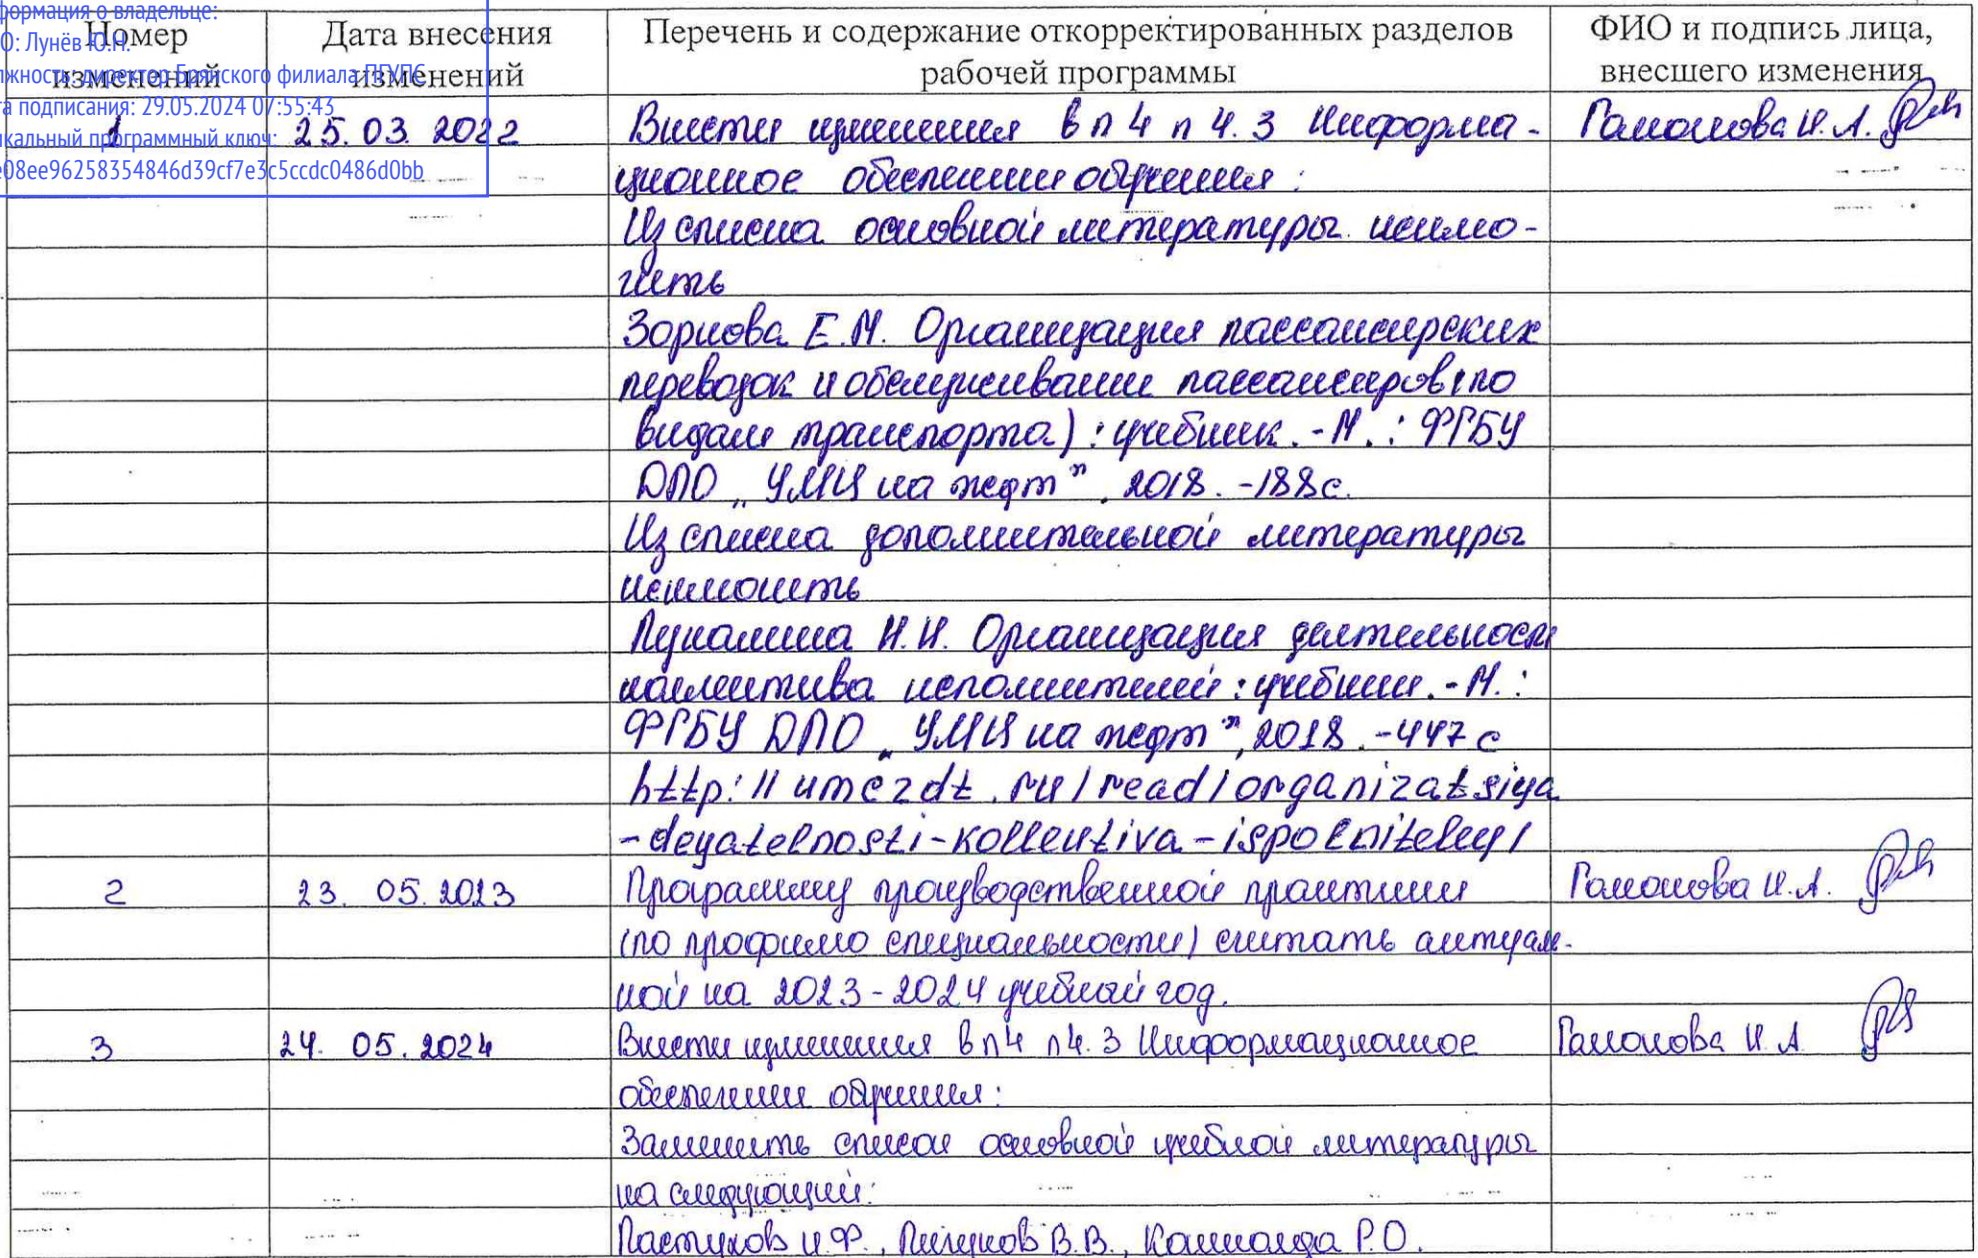 формация о владельце:
О: Лунёв Ю.Н.
лжность: директор Брянского филиала ПГУПС
та подписания: 29.05.2024 07:55:43
икальный программный ключ:
e08ee96258354846d39cf7e3c5ccdc0486d0bb
Номер изменений
Дата внесения изменений
Перечень и содержание откорректированных разделов
рабочей программы
ФИО и подпись лица,
внесшего изменения
1 25.03.2022 Внести изменения в п 4 п 4.3 Информа- Гамонова И.А.
ционное обеспечение обучения:
Из списка основной литературы исклю-
чить
Зорькова Е.М. Организация пассажирских
перевозок и обслуживание пассажиров (по
видам транспорта): учебник. - М.: ФГБУ
ДПО „УМЦ на жедт", 2018. -188с.
Из списка дополнительной литературы
исключить
Лукашина Н.И. Организация деятельност
коллектива исполнителей: учебник. - М.:
ФГБУ ДПО „УМЦ на жедт", 2018. -447 с
http://umczdt.ru/read/organizatsiya
-deyatelnosti-kollektiva-ispolniteley/
2 23.05.2023 Программу производственной практики Гамонова И.А.
(по профилю специальности) считать актуаль-
ной на 2023-2024 учебный год.
3 24.05.2024 Внести изменения в п4 п4.3 Информационное Гамонова И.А
обеспечение обучения:
Заменить список основной учебной литературы
на следующий:
Пастухов И.Ф., Пигунов В.В., Кошкалда Р.О.